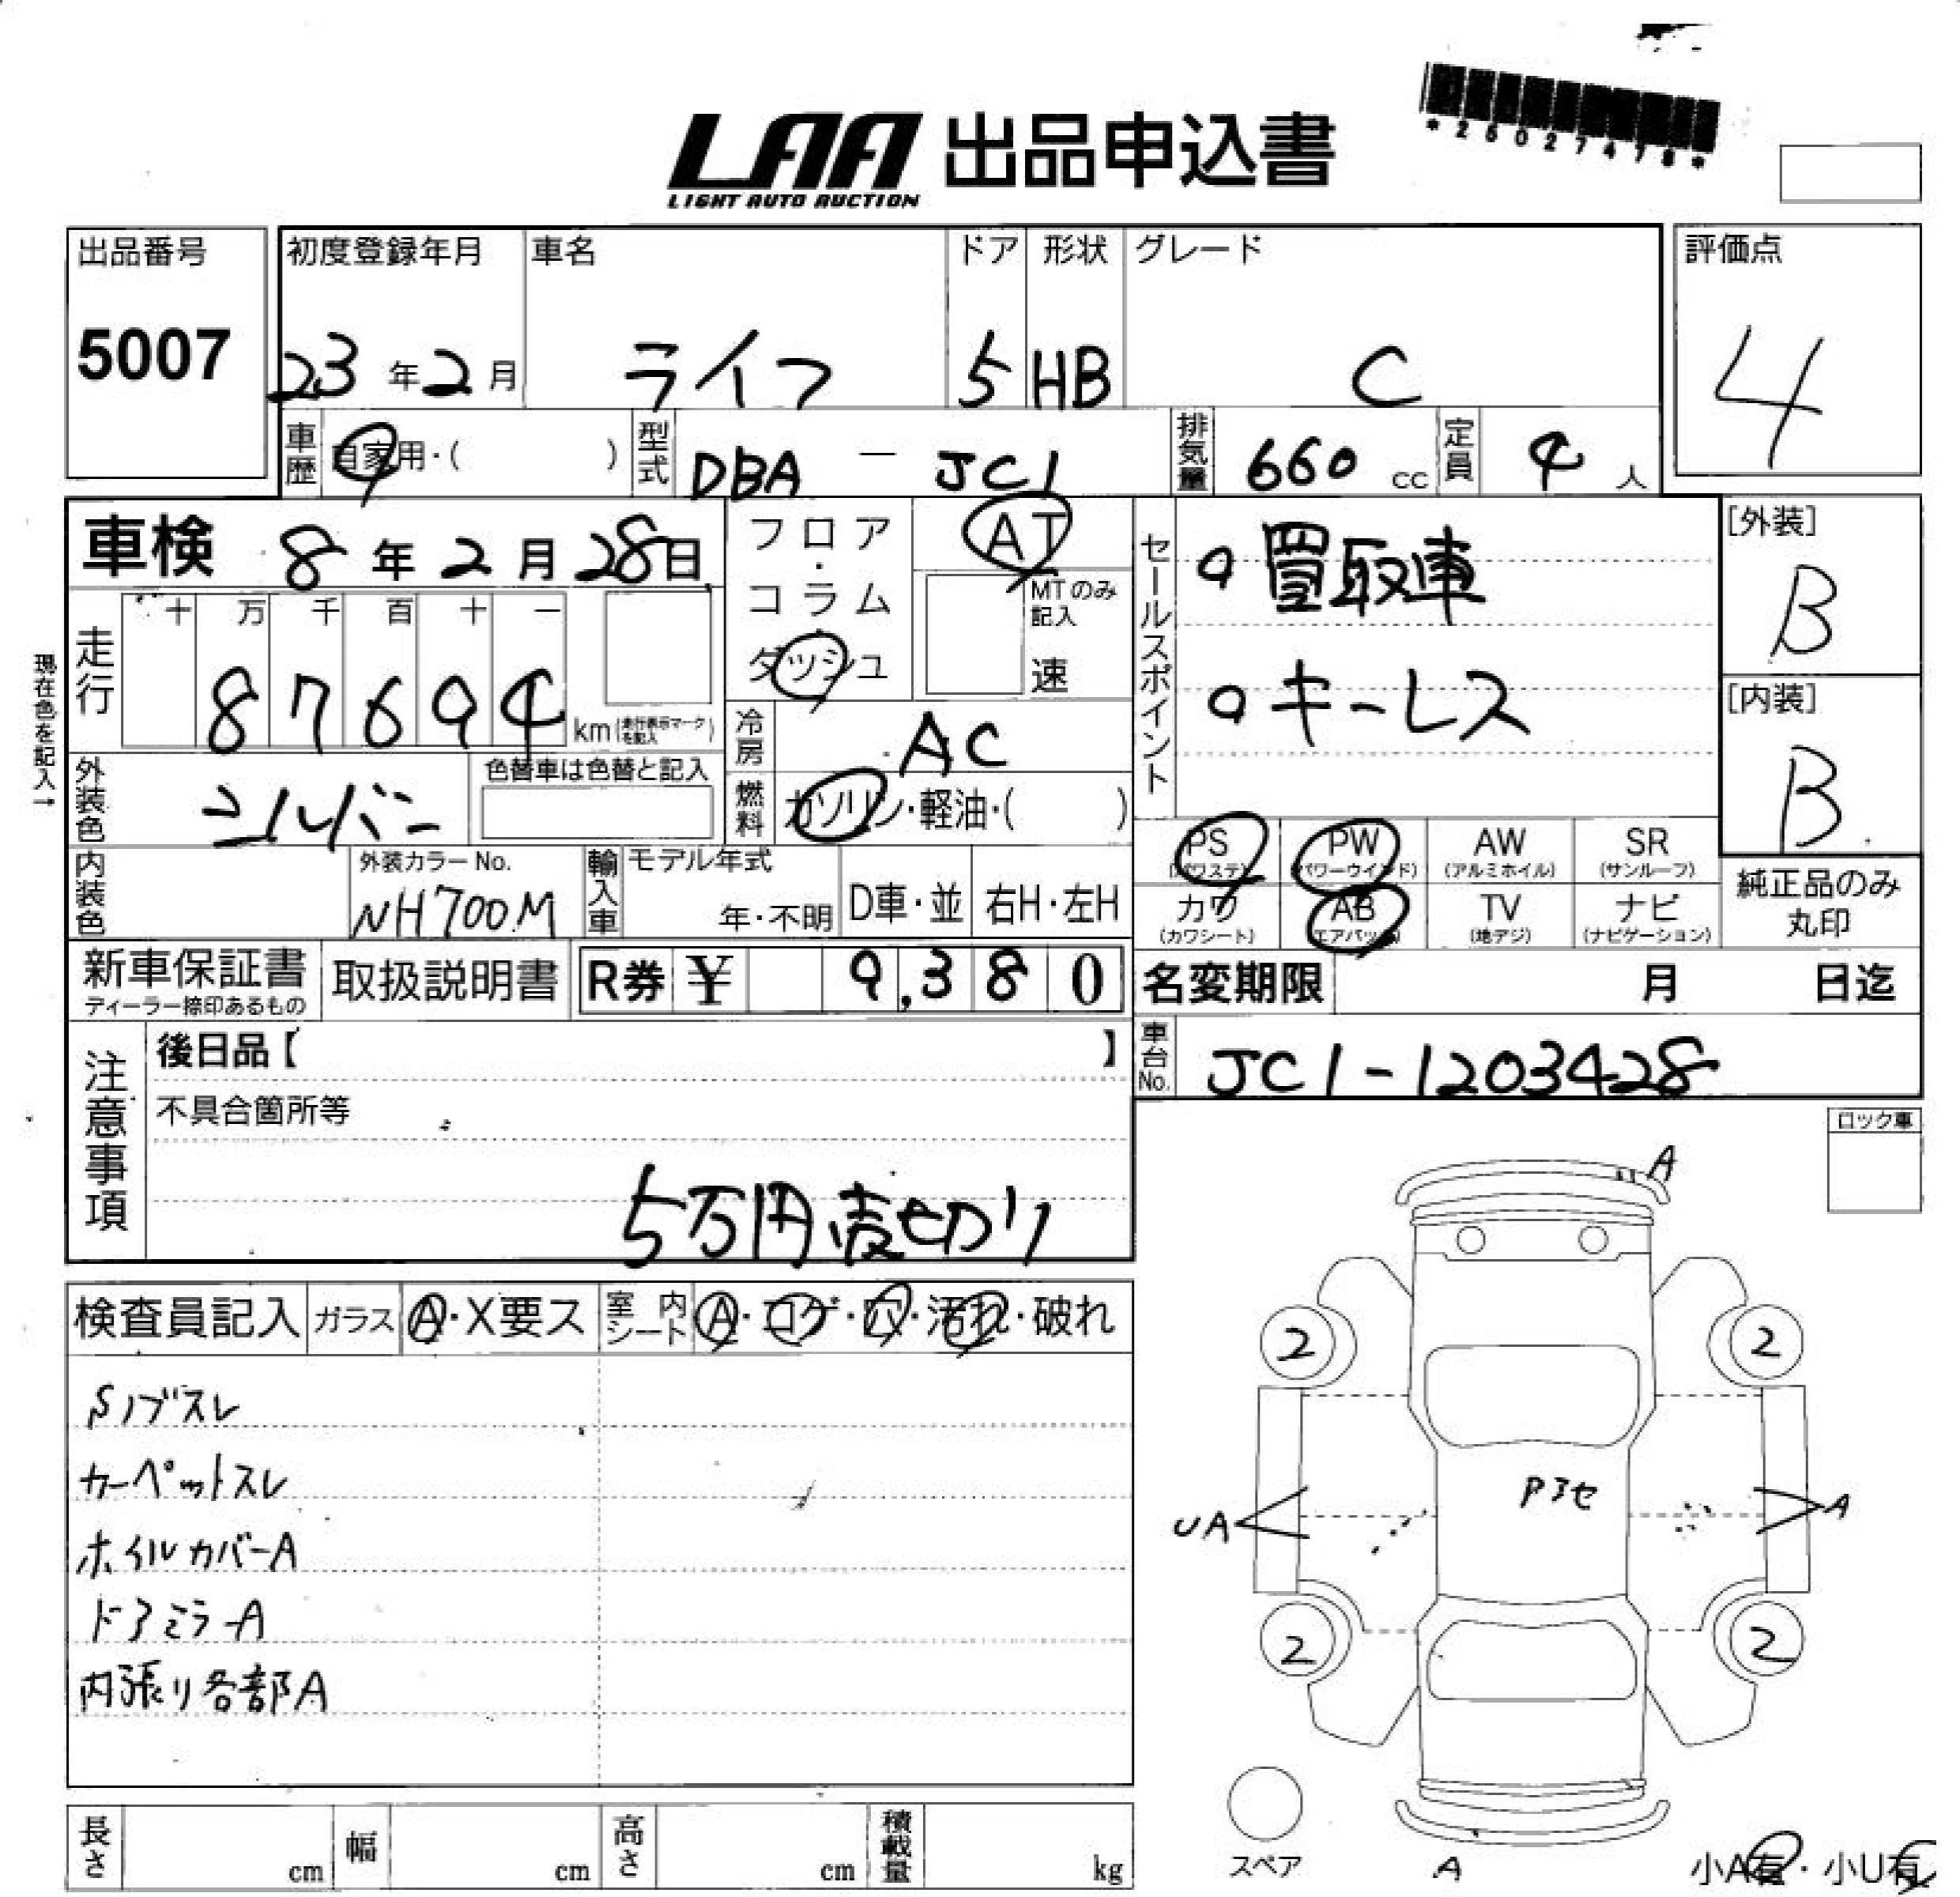 *26027478*
LAA 出品申込書
LIGHT AUTO AUCTION
出品番号
5007
初度登録年月
23年2月
車名
ライフ
ドア
5
形状
HB
グレード
C
評価点
4
車歴
自家用・( )
型式
DBA － JC1
排気量
660 cc
定員
4 人
車検 8年2月28日
フロア・コラム・ダッシュ
AT
MTのみ記入
速
現在色を記入→
走行
十 万 千 百 十 一
87694 km(走行表示マークを記入)
冷房
AC
外装色
シルバー
色替車は色替と記入
燃料
ガソリン・軽油・( )
セールスポイント
○買取車
○キーレス
[外装]
B
[内装]
B
PS
(パワステ)
PW
(パワーウインド)
AW
(アルミホイル)
SR
(サンルーフ)
カワ
(カワシート)
AB
(エアバック)
TV
(地デジ)
ナビ
(ナビゲーション)
純正品のみ
丸印
内装色
外装カラーNo.
NH700M
輸入車
モデル年式
年・不明
D車・並
右H・左H
新車保証書
ディーラー捺印あるもの
取扱説明書
R券 ¥ 9,380
名変期限 月 日迄
車台No.
JC1-1203428
注意事項
後日品【 】
不具合箇所等
5万円売切り
ロック車
検査員記入
ガラス
A・X要ス
室内シート
A・コゲ・穴・汚れ・破れ
Sノブスレ
カーペットスレ
ホイルカバーA
ドアミラーA
内張り各部A
A
2
2
Pヨセ
UA
A
2
2
スペア
A
小A有・小U有
長さ
cm
幅
cm
高さ
cm
積載量
kg